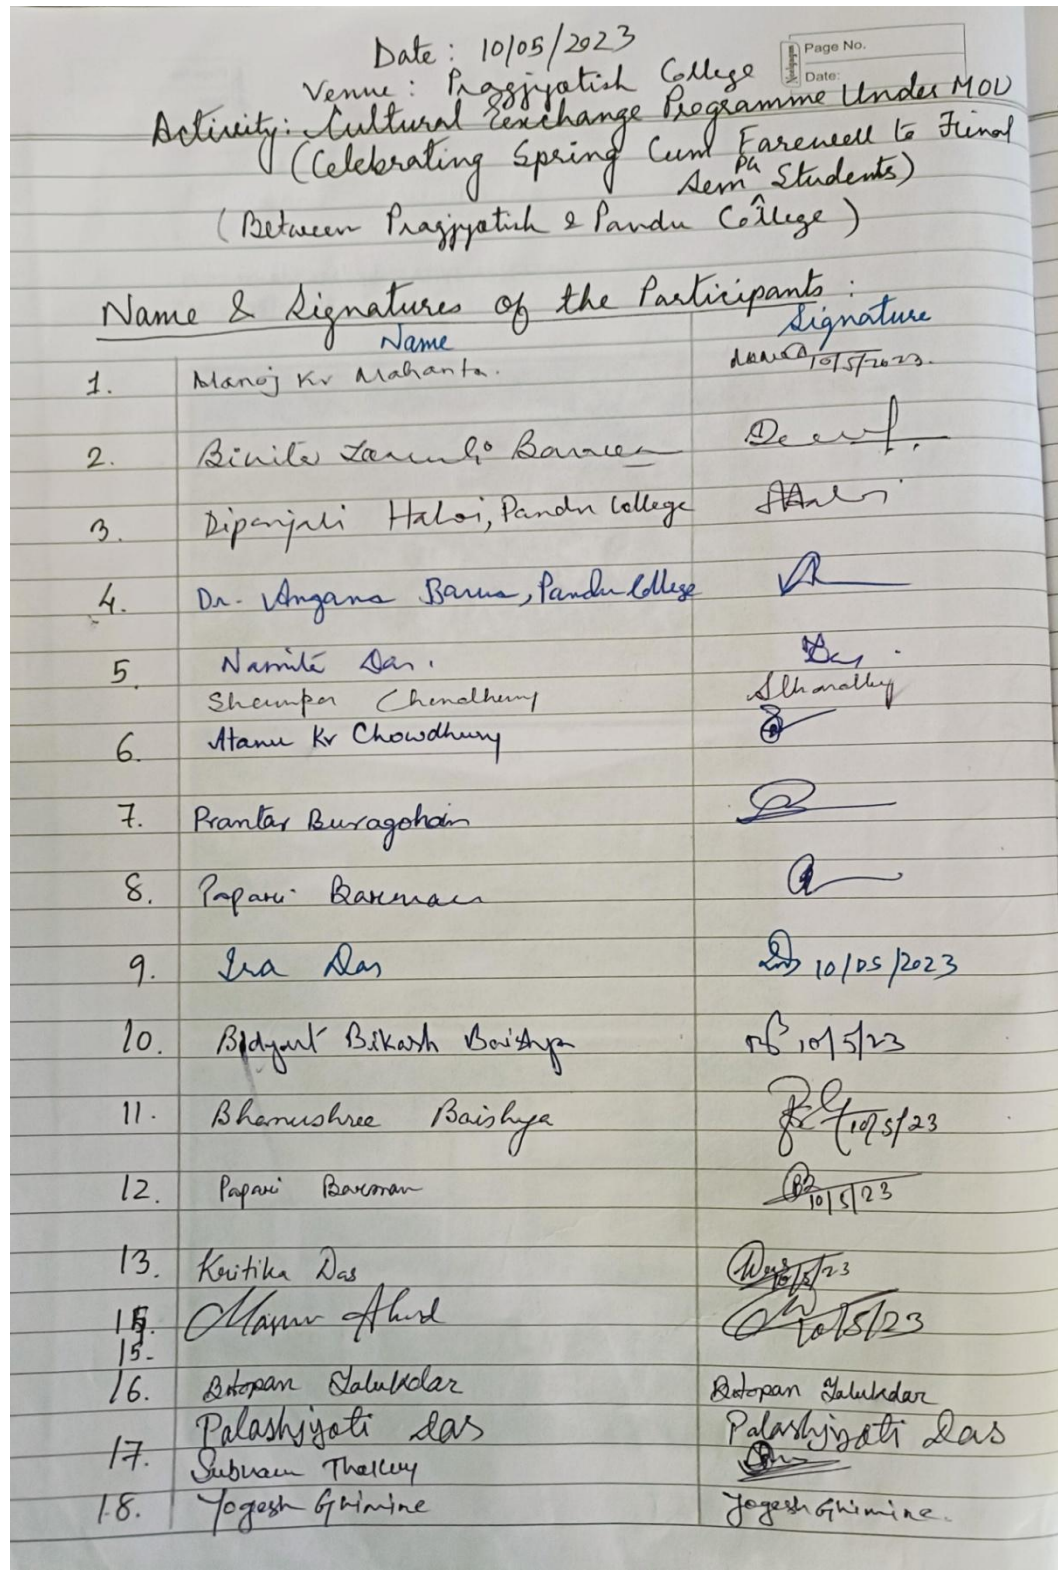 Date : 10/05/2023
Page No.
Date:
Venue : Pragjyotish College
Activity: Cultural Exchange Programme Under MOU
(Celebrating Spring Cum Farewell to Final
PG
Sem ^ Students)
(Between Pragjyotish & Pandu College)
Name & Signatures of the Participants :
Name Signature
1. Manoj Kr Mahanta. 10/5/2023.
2. Binita
3. Dipanjali Haloi, Pandu College
4. Dr. Angana Barua, Pandu College
5. Namita Das.
Shampa Choudhury
6. Atanu Kr Chowdhury
7. Prantar Buragohain
8. Papari Barman
9. Ira Das 10/05/2023
10. Bidyut Bikash Baishya 10/5/23
11. Bhanushree Baishya 10/5/23
12. Papari Barman 10/5/23
13. Kritika Das 10/5/23
14. 10/5/23
15.
16. Bitopan Talukdar Bitopan Talukdar
Palashjyoti Das Palashjyoti Das
17.
18. Yogesh Ghimire Yogesh Ghimire.